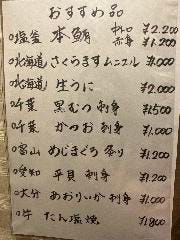 おすすめ品
○塩釜 本鮪 中トロ ¥2.200
赤身 ¥1.200
○北海道 さくらますムニエル ¥1.000
○北海道 生うに ¥2.000
○千葉 黒むつ刺身 ¥1.500
○千葉 かつお刺身 ¥1.000
○富山 めじまぐろ炙り ¥1.200
○愛知 平貝 刺身 ¥1.200
○大分 あおりいか刺身 ¥1.000
○牛 たん塩焼 ¥1.800